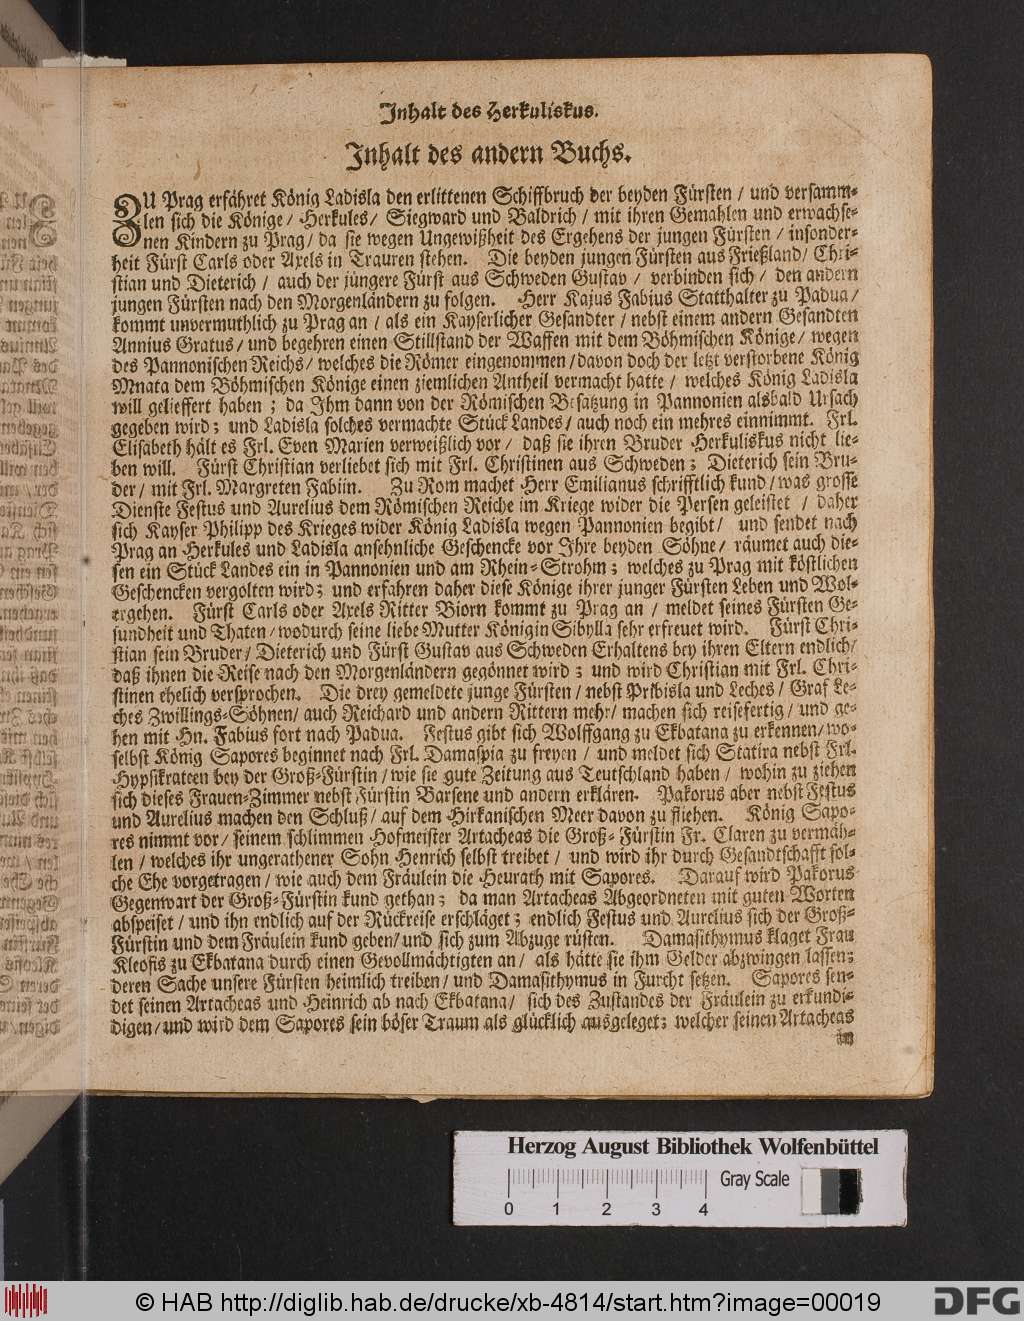 Inhalt des Herkuliskus.
Inhalt des andern Buchs.
ZU Prag erfähret König Ladisla den erlittenen Schiffbruch der beyden Fürsten / und versamm-
len sich die Könige / Herkules / Siegward und Baldrich / mit ihren Gemahlen und erwachse-
nen Kindern zu Prag / da sie wegen Ungewißheit des Ergehens der jungen Fürsten / insonder-
heit Fürst Carls oder Axels in Trauren stehen. Die beyden jungen Fürsten aus Frießland / Chri-
stian und Dieterich / auch der jüngere Fürst aus Schweden Gustav / verbinden sich / den andern
jungen Fürsten nach den Morgenländern zu folgen. Herr Kajus Fabius Statthalter zu Padua /
kommt unvermuthlich zu Prag an / als ein Kayserlicher Gesandter / nebst einem andern Gesandten
Annius Gratus / und begehren einen Stillstand der Waffen mit dem Böhmischen Könige / wegen
des Pannonischen Reichs / welches die Römer eingenommen / davon doch der letzt verstorbene König
Mnata dem Böhmischen Könige einen ziemlichen Antheil vermacht hatte / welches König Ladisla
will gelieffert haben ; da Ihm dann von der Römischen Besatzung in Pannonien alsbald Ursach
gegeben wird ; und Ladisla solches vermachte Stück Landes / auch noch ein mehres einnimmt. Frl.
Elisabeth hält es Frl. Even Marien verweißlich vor / daß sie ihren Bruder Herkuliskus nicht lie-
ben will. Fürst Christian verliebet sich mit Frl. Christinen aus Schweden ; Dieterich sein Bru-
der / mit Frl. Margreten Fabiin. Zu Rom machet Herr Emilianus schrifftlich kund / was grosse
Dienste Festus und Aurelius dem Römischen Reiche im Kriege wider die Persen geleistet / daher
sich Kayser Philipp des Krieges wider König Ladisla wegen Pannonien begibt / und sendet nach
Prag an Herkules und Ladisla ansehnliche Geschencke vor Ihre beyden Söhne / räumet auch die-
sen ein Stück Landes ein in Pannonien und am Rhein-Strohm ; welches zu Prag mit köstlichen
Geschencken vergolten wird ; und erfahren daher diese Könige ihrer junger Fürsten Leben und Wol-
ergehen. Fürst Carls oder Axels Ritter Biorn kommt zu Prag an / meldet seines Fürsten Ge-
sundheit und Thaten / wodurch seine liebe Mutter Königin Sibylla sehr erfreuet wird. Fürst Chri-
stian sein Bruder / Dieterich und Fürst Gustav aus Schweden Erhaltens bey ihren Eltern endlich /
daß ihnen die Reise nach den Morgenländern gegönnet wird ; und wird Christian mit Frl. Chri-
stinen ehelich versprochen. Die drey gemeldete junge Fürsten / nebst Pribisla und Leches / Graf Le-
ches Zwillings-Söhnen / auch Reichard und andern Rittern mehr / machen sich reisefertig / und ge-
hen mit Hn. Fabius fort nach Padua. Festus gibt sich Wolffgang zu Ekbatana zu erkennen / wo-
selbst König Sapores beginnet nach Frl. Damaspia zu freyen / und meldet sich Statira nebst Frl.
Hypsikrateen bey der Groß-Fürstin / wie sie gute Zeitung aus Teutschland haben / wohin zu ziehen
sich dieses Frauen-Zimmer nebst Fürstin Barsene und andern erklären. Pakorus aber nebst Festus
und Aurelius machen den Schluß / auf dem Hirkanischen Meer davon zu fliehen. König Sapo-
res nimmt vor / seinem schlimmen Hofmeister Artacheas die Groß-Fürstin Fr. Claren zu vermäh-
len / welches ihr ungerathener Sohn Henrich selbst treibet / und wird ihr durch Gesandtschafft sol-
che Ehe vorgetragen / wie auch dem Fräulein die Heurath mit Sapores. Darauf wird Pakorus
Gegenwart der Groß-Fürstin kund gethan ; da man Artacheas Abgeordneten mit guten Worten
abspeiset / und ihn endlich auf der Rückreise erschläget ; endlich Festus und Aurelius sich der Groß-
Fürstin und dem Fräulein kund geben / und sich zum Abzuge rüsten. Damasithymus klaget Frau
Kleofis zu Ekbatana durch einen Gevollmächtigten an / als hätte sie ihm Gelder abzwingen lassen ;
deren Sache unsere Fürsten heimlich treiben / und Damasithymus in Furcht setzen. Sapores sen-
det seinen Artacheas und Heinrich ab nach Ekbatana / sich des Zustandes der Fräulein zu erkundi-
digen / und wird dem Sapores sein böser Traum als glücklich ausgeleget ; welcher seinen Artacheas
Herzog August Bibliothek Wolfenbüttel
Gray Scale
0 1 2 3 4
© HAB http://diglib.hab.de/drucke/xb-4814/start.htm?image=00019
DFG